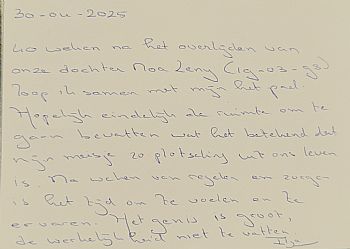 30-04-2025
40 weken na het overlijden van
onze dochter Noa Zeny (19-03-93)
loop ik samen met mijn het pad.
Hopelijk eindelijk de ruimte om te
gaan bevatten wat het betekend dat
mijn meisje zo plotseling uit ons leven
is. Na weken van regelen en zorgen
is het tijd om te voelen en te
ervaren. Het gemis is groot,
de werkelijkheid niet te vatten.